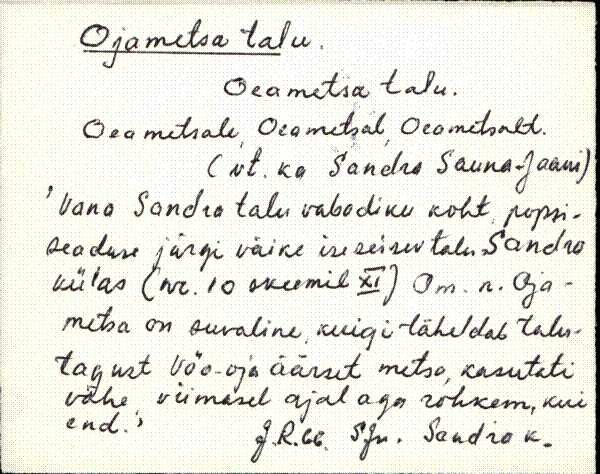 Ojametsa talu.
Oeametsa talu.
Oeametsale, Oeametsal, Oeametsalt.
(vt. ka Sandra Sauna-Jaani)
'Vana Sandra talu vabadiku koht, popsi-
seaduse järgi väike iseseisev talu Sandra
külas (nr. 10 skeemil XI) Om. n. Oja-
metsa on suvaline, kuigi tähendab talu-
tagust Vöo-oja äärset metsa, kasutati
vähe, viimasel ajal aga rohkem, kui
end.'
J.R. 66. Sjn. Sandra k.